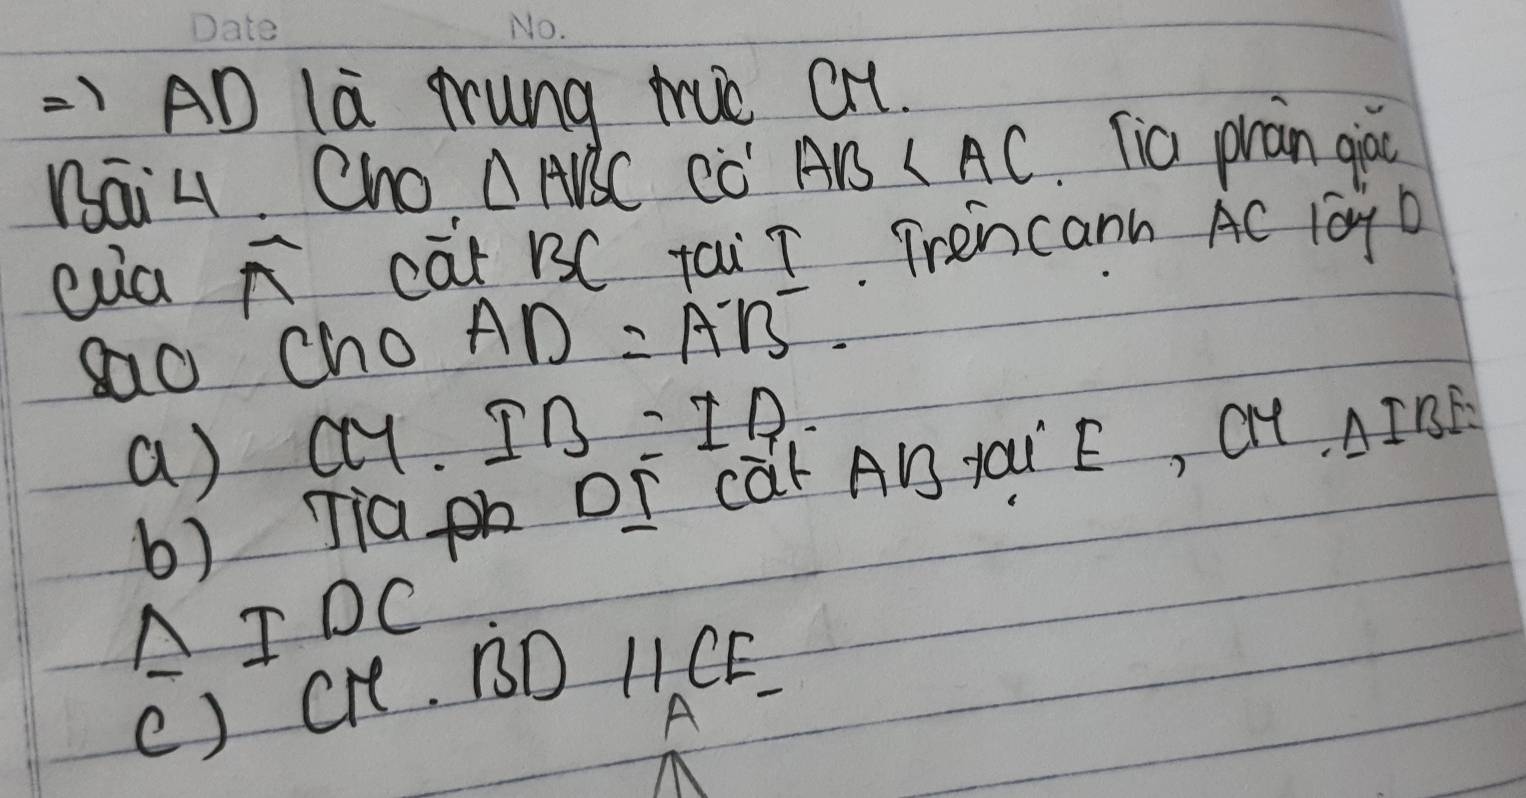 Date No.
=> AD là trung trực CM.
Bài 4. Cho Δ ABC có AB < AC. Tia phân giác
của Â cắt BC tại I. Trên cạnh AC lấy D
sao cho AD = AB.
a) CM. IB = ID.
b) Tia DI cắt AB tại E, CM. Δ IBE =
Δ IDC
c) CM. BD // CE
A